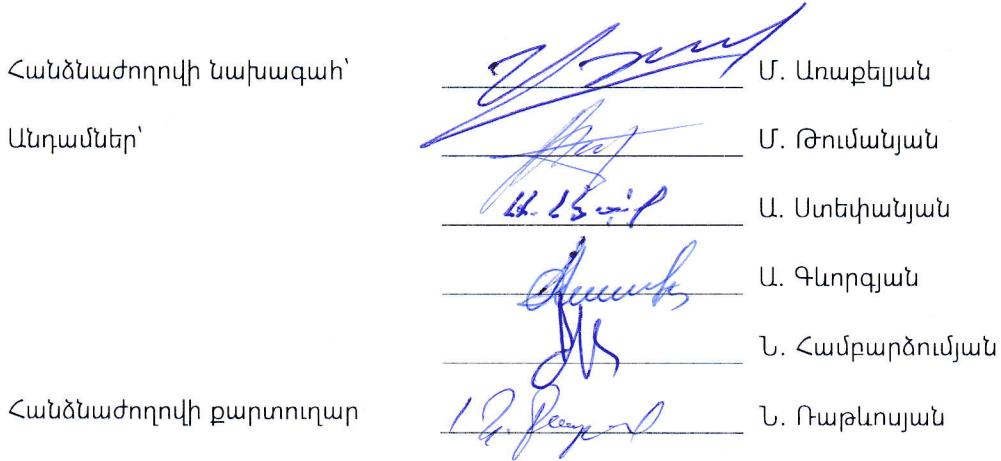 Հանձնաժողովի նախագահ՝ Մ. Առաքելյան
Անդամներ՝ Մ. Թումանյան
Ա. Ստեփանյան
Ա. Գևորգյան
Ն. Համբարձումյան
Հանձնաժողովի քարտուղար Ն. Ռաթևոսյան